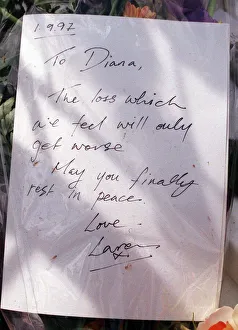 1.9.97
To Diana,
The loss which
we feel will only
get worse
May you finally
rest in peace.
Love